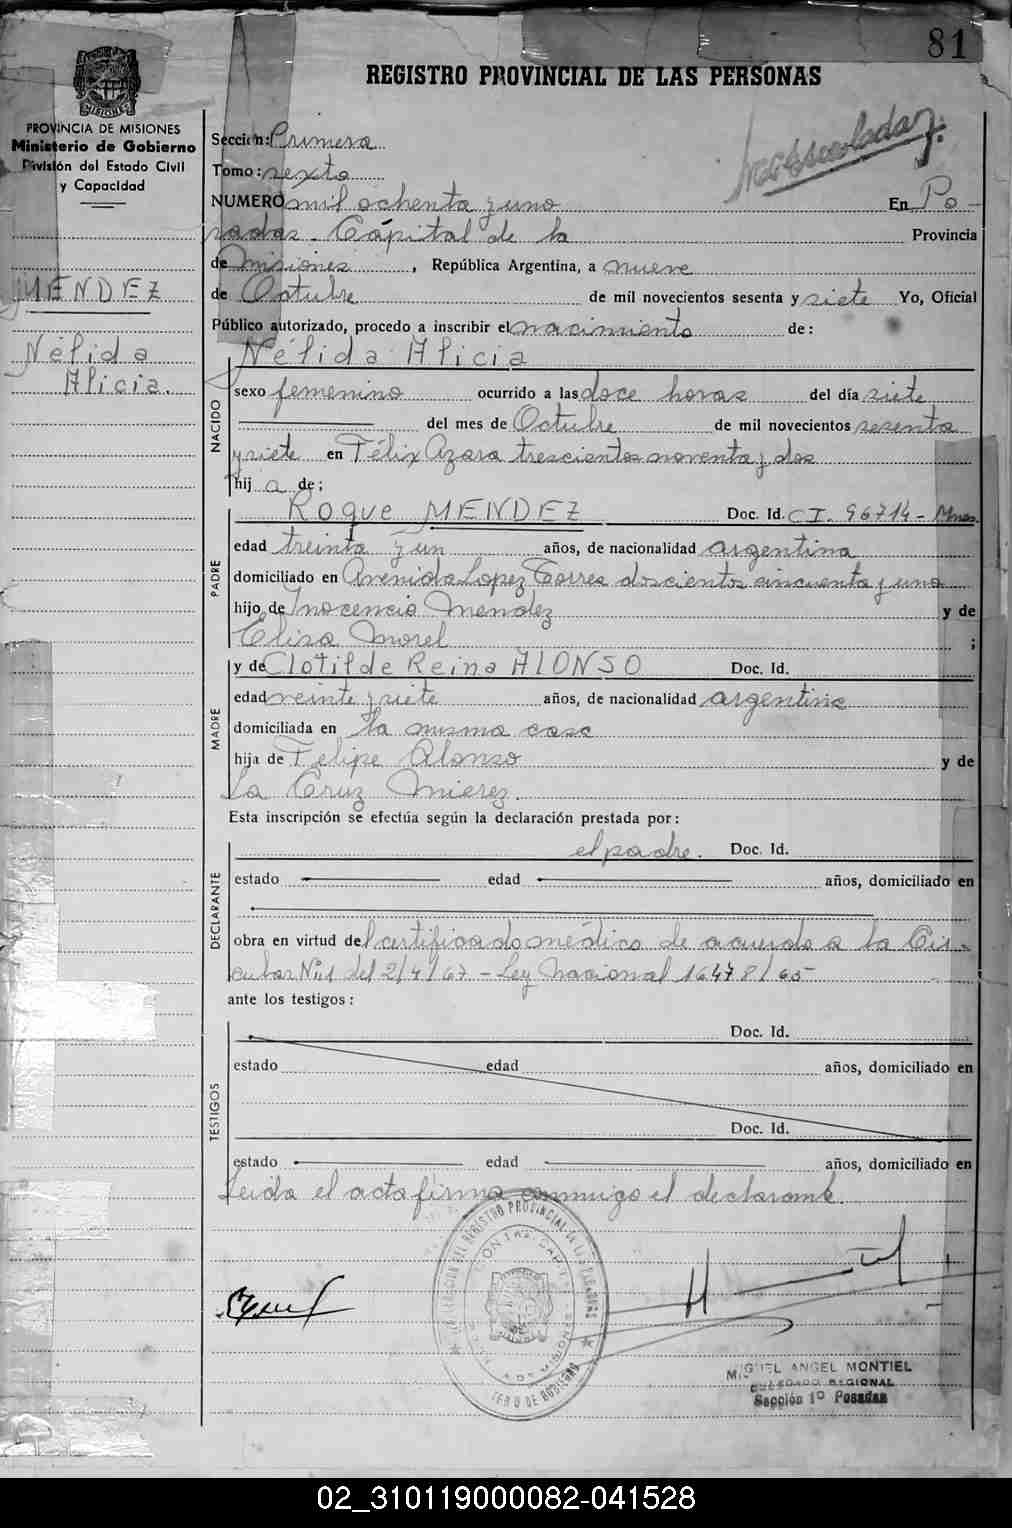 81
REGISTRO PROVINCIAL DE LAS PERSONAS
MISIONES
PROVINCIA DE MISIONES
Ministerio de Gobierno
División del Estado Civil
y Capacidad
MENDEZ
Nélida
Alicia.
Sección: Primera
Tomo: sexto
NUMERO mil ochenta y uno En Po-
sadas - Cápital de la Provincia
de Misiones, República Argentina, a nueve
de Octubre de mil novecientos sesenta y siete Yo, Oficial
Público autorizado, procedo a inscribir el nacimiento de:
NACIDO
Nélida Alicia
sexo femenino ocurrido a las doce horas del día siete
del mes de Octubre de mil novecientos sesenta
y siete en Félix Azara trescientos noventa y dos
hij a de;
PADRE
Roque MENDEZ Doc. Id. C.I. 96714 - Mnes.
edad treinta y un años, de nacionalidad argentina
domiciliado en Avenida Lopez Torres doscientos cincuenta y uno
hijo de Inocencio Mendez y de
Elisa Morel ;
MADRE
y de Clotilde Reina ALONSO Doc. Id.
edad veinte y siete años, de nacionalidad argentina
domiciliada en la misma casa
hija de Felipe Alonso y de
la Cruz Mierez.
Esta inscripción se efectúa según la declaración prestada por:
DECLARANTE
el padre. Doc. Id.
estado edad años, domiciliado en
obra en virtud del certificado médico de acuerdo a la Cir-
cular Nº1 del 2/4/67 - Ley Nacional 16478/65
ante los testigos:
TESTIGOS
Doc. Id.
estado edad años, domiciliado en
Doc. Id.
estado edad años, domiciliado en
Leida el acta firma conmigo el declarante.
MIGUEL ANGEL MONTIEL
DELEGADO REGIONAL
Sección 1º Posadas
02_310119000082-041528